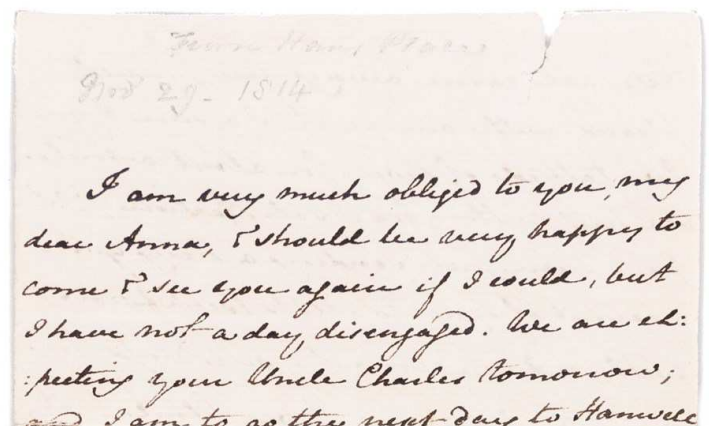 From Hans Place
Nov 29. 1814
I am very much obliged to you, my
dear Anna, & should be very happy to
come & see you again if I could, but
I have not a day disengaged. We are ex:
:pecting your Uncle Charles tomorrow;
and I am to go the next day to Hanwell